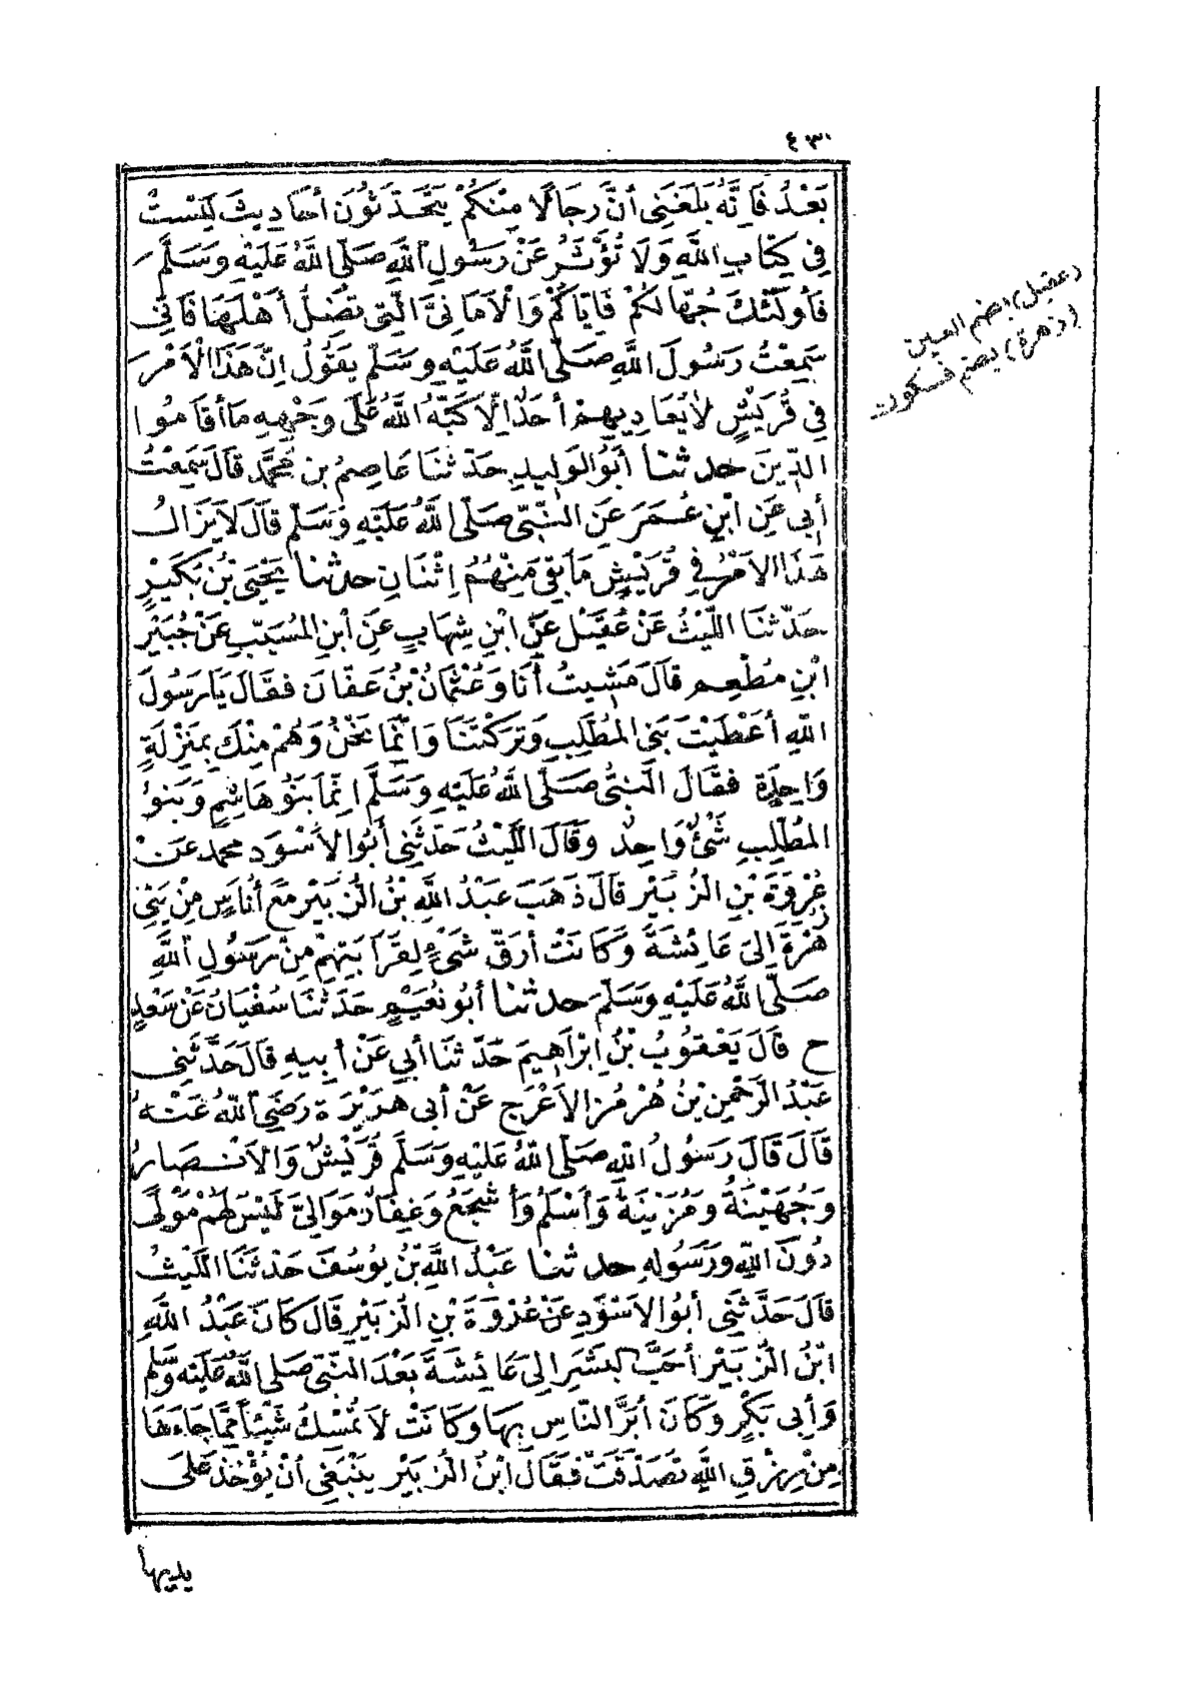 ٤٣٠
بَعْدُ فَإِنَّهُ بَلَغَنِي أَنَّ رِجَالًا مِنْكُمْ يَتَحَدَّثُونَ أَحَادِيثَ لَيْسَتْ
فِي كِتَابِ اللَّهِ وَلَا تُؤْثَرُ عَنْ رَسُولِ اللَّهِ صَلَّى اللَّهُ عَلَيْهِ وَسَلَّمَ
فَأُولَئِكَ جُهَّالُكُمْ فَإِيَّاكُمْ وَالْأَمَانِيَّ الَّتِي تُضِلُّ أَهْلَهَا فَإِنِّي
سَمِعْتُ رَسُولَ اللَّهِ صَلَّى اللَّهُ عَلَيْهِ وَسَلَّمَ يَقُولُ إِنَّ هَذَا الْأَمْرَ
فِي قُرَيْشٍ لَا يُعَادِيهِمْ أَحَدٌ إِلَّا كَبَّهُ اللَّهُ عَلَى وَجْهِهِ مَا أَقَامُوا
الدِّينَ حدثنا أَبُو الوَلِيدِ حَدَّثَنَا عَاصِمُ بن مُحَمَّد قَالَ سَمِعْتُ
أَبِي عَنِ ابْنِ عُمَرَ عَنِ النَّبِيِّ صَلَّى اللَّهُ عَلَيْهِ وَسَلَّمَ قَالَ لَا يَزَالُ
هَذَا الْأَمْرُ فِي قُرَيْشٍ مَا بَقِيَ مِنْهُمُ اثْنَانِ حدثنا يَحْيَى بْنُ بُكَيْرٍ
حَدَّثَنَا اللَّيْثُ عَنْ عُقَيْلٍ عَنِ ابْنِ شِهَابٍ عَنِ ابْنِ المُسَيِّبِ عَنْ جُبَيْرِ
ابْنِ مُطْعِمٍ قَالَ مَشَيْتُ أَنَا وَعُثْمَانُ بْنُ عَفَّانَ فَقَالَ يَا رَسُولَ
اللَّهِ أَعْطَيْتَ بَنِي المُطَّلِبِ وَتَرَكْتَنَا وَإِنَّمَا نَحْنُ وَهُمْ مِنْكَ بِمَنْزِلَةٍ
وَاحِدَةٍ فَقَالَ النَّبِيُّ صَلَّى اللَّهُ عَلَيْهِ وَسَلَّمَ إِنَّمَا بَنُو هَاشِمٍ وَبَنُو
المُطَّلِبِ شَيْءٌ وَاحِدٌ وَقَالَ اللَّيْثُ حَدَّثَنِي أَبُو الْأَسْوَدِ محمد عَنْ
عُرْوَةَ بْنِ الزُّبَيْرِ قَالَ ذَهَبَ عَبْدُ اللَّهِ بْنُ الزُّبَيْرِ مَعَ أُنَاسٍ مِنْ بَنِي
زُهْرَةَ إِلَى عَائِشَةَ وَكَانَتْ أَرَقَّ شَيْءٍ لِقَرَابَتِهِمْ مِنْ رَسُولِ اللَّهِ
صَلَّى اللَّهُ عَلَيْهِ وَسَلَّمَ حدثنا أَبُو نُعَيْمٍ حَدَّثَنَا سُفْيَانُ عَنْ سَعْدٍ
ح قَالَ يَعْقُوبُ بْنُ إِبْرَاهِيمَ حَدَّثَنَا أَبِي عَنْ أَبِيهِ قَالَ حَدَّثَنِي
عَبْدُ الرَّحْمَنِ بْنُ هُرْمُزَ الْأَعْرَجُ عَنْ أَبِي هُرَيْرَةَ رَضِيَ اللَّهُ عَنْهُ
قَالَ قَالَ رَسُولُ اللَّهِ صَلَّى اللَّهُ عَلَيْهِ وَسَلَّمَ قُرَيْشٌ وَالْأَنْصَارُ
وَجُهَيْنَةُ وَمُزَيْنَةُ وَأَسْلَمُ وَأَشْجَعُ وَغِفَارُ مَوَالِيَّ لَيْسَ لَهُمْ مَوْلًى
دُونَ اللَّهِ وَرَسُولِهِ حدثنا عَبْدُ اللَّهِ بْنُ يُوسُفَ حَدَّثَنَا اللَّيْثُ
قَالَ حَدَّثَنِي أَبُو الْأَسْوَدِ عَنْ عُرْوَةَ بْنِ الزُّبَيْرِ قَالَ كَانَ عَبْدُ اللَّهِ
ابْنُ الزُّبَيْرِ أَحَبَّ البَشَرِ إِلَى عَائِشَةَ بَعْدَ النَّبِيِّ صَلَّى اللَّهُ عَلَيْهِ وَسَلَّمَ
وَأَبِي بَكْرٍ وَكَانَ أَبَرَّ النَّاسِ بِهَا وَكَانَتْ لَا تُمْسِكُ شَيْئًا مِمَّا جَاءَهَا
مِنْ رِزْقِ اللَّهِ تَصَدَّقَتْ فَقَالَ ابْنُ الزُّبَيْرِ يَنْبَغِي أَنْ يُؤْخَذَ عَلَى
يديها
(عقيل) بضم العين
(زهرة) بضم فسكون